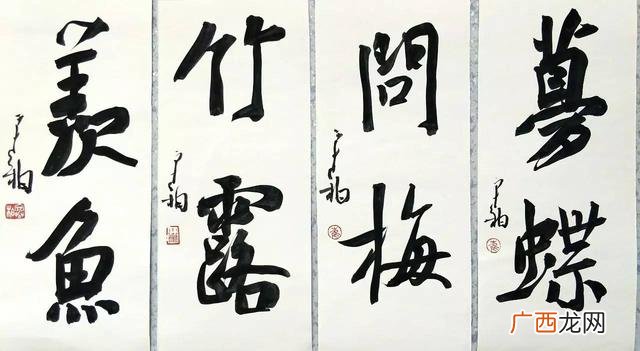 夢蝶
問梅
竹露
羨魚
广西龙网